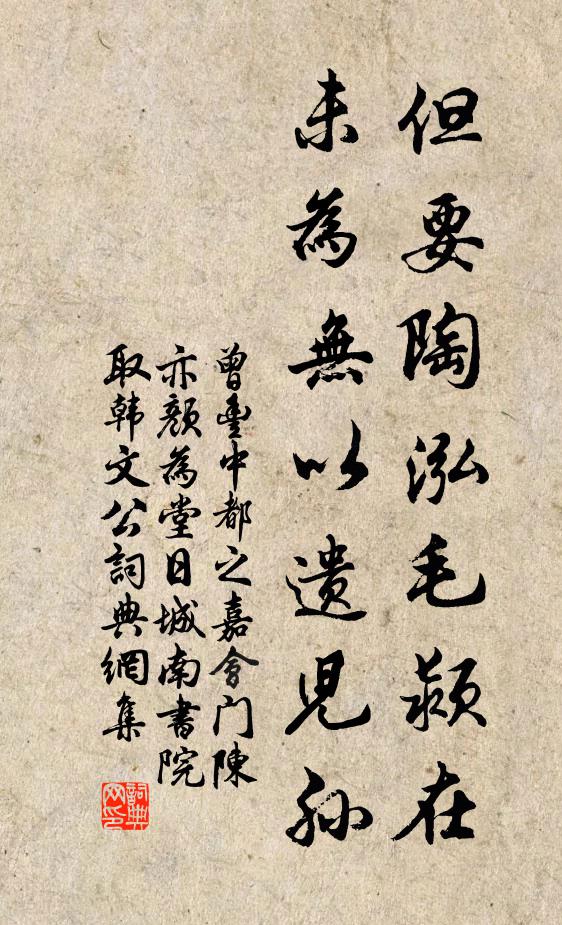 但要陶泓毛颖在
未為無以遺兒孫
曾豐中都之嘉會门陳
亦顏為堂日城南書院
取韩文公詞典網集
詞典
网印